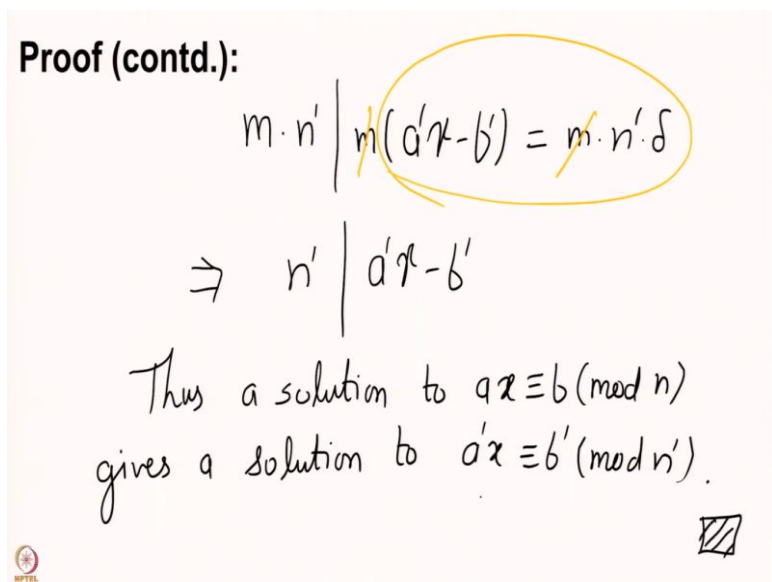 Proof (contd.):
m·n' | m(a'x-b') = m·n'·δ
⇒ n' | a'x-b'
Thus a solution to ax≡b(mod n)
gives a solution to a'x≡b'(mod n').
NPTEL